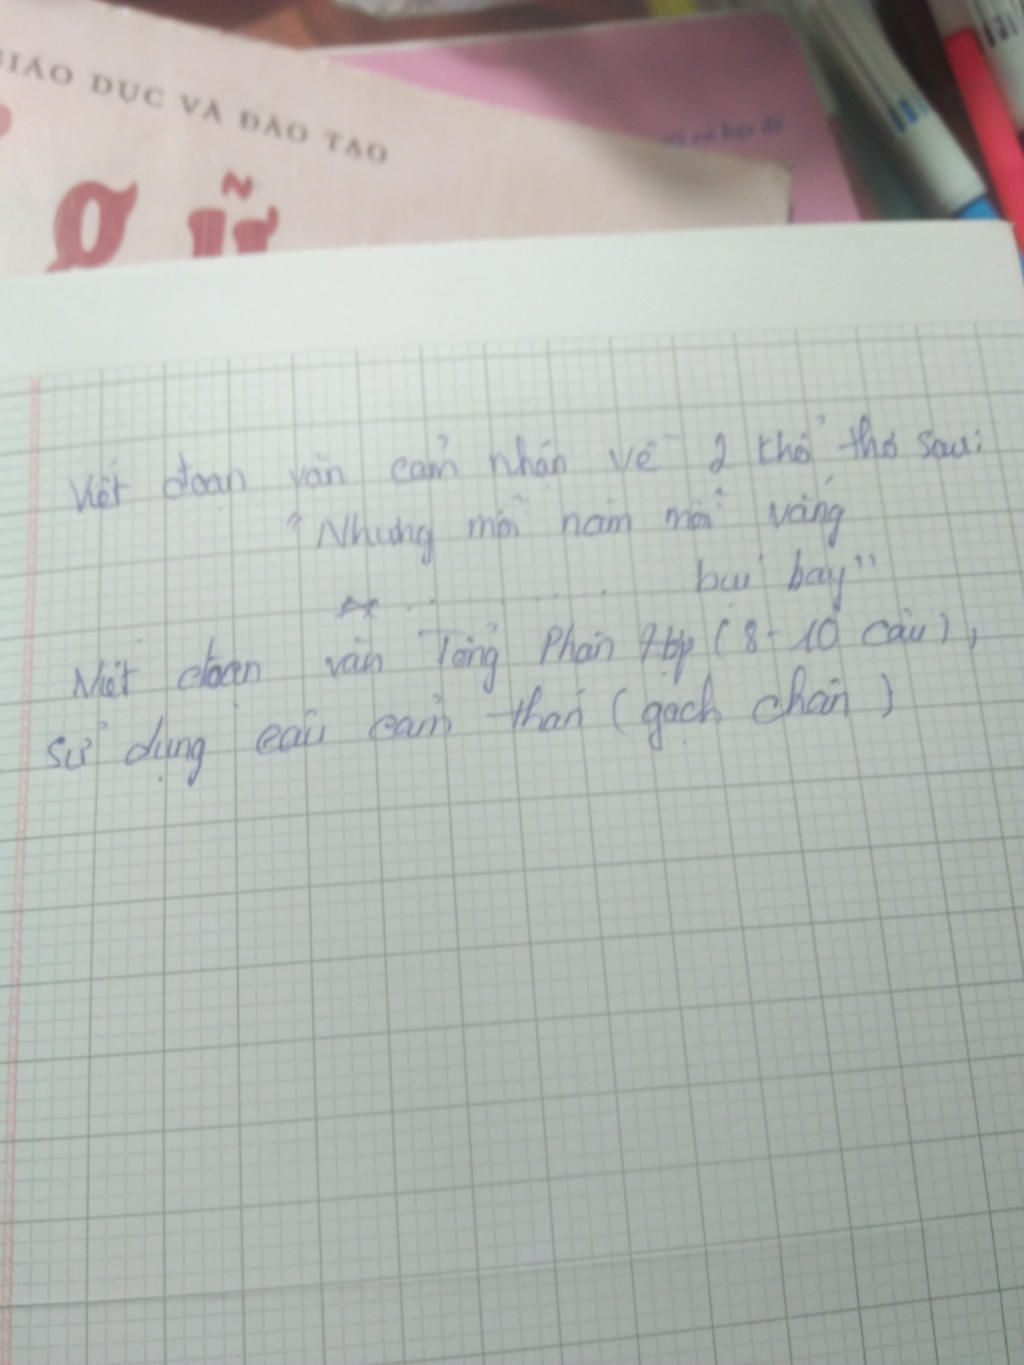 GIÁO DỤC VÀ ĐÀO TẠO
Ơ Ữ
Viết đoạn văn cảm nhận về 2 khổ thơ sau:
"Nhưng mỗi năm mỗi vắng
.............. bụi bay"
Viết đoạn văn Tổng Phân Hợp (8-10 câu),
sử dụng câu cảm thán (gạch chân)